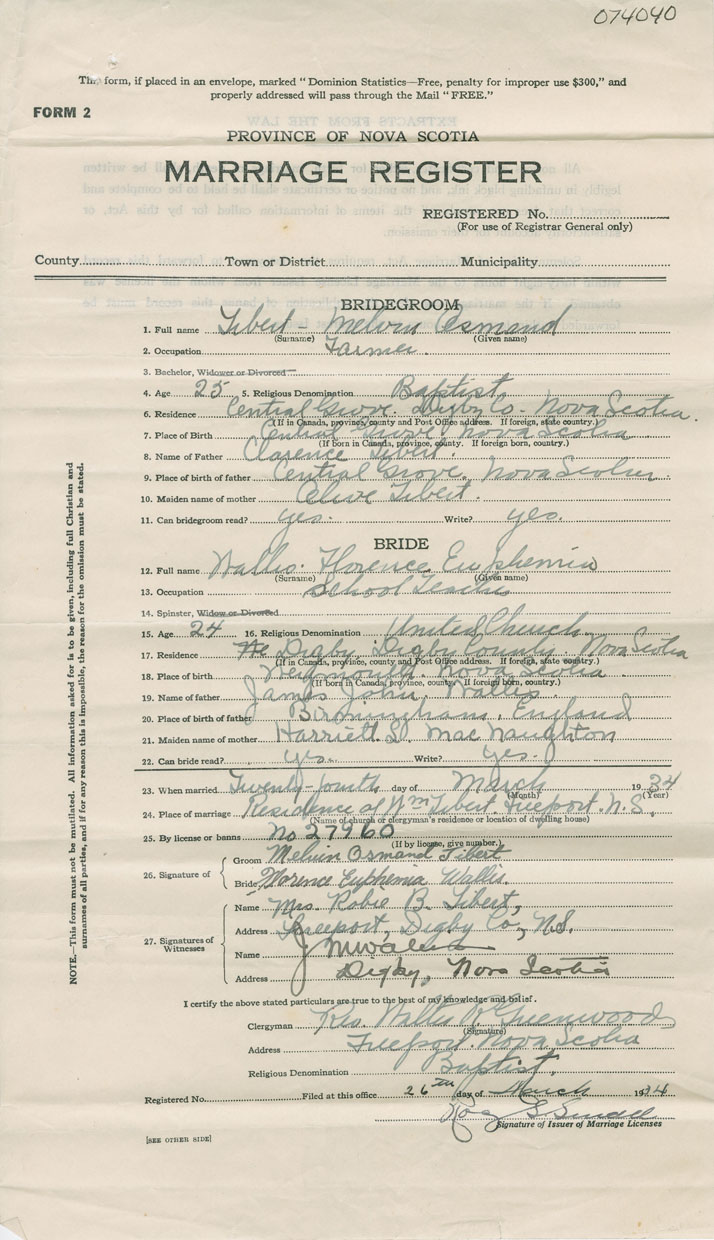 074040
This form, if placed in an envelope, marked "Dominion Statistics—Free, penalty for improper use $300," and
properly addressed will pass through the Mail "FREE."
FORM 2
PROVINCE OF NOVA SCOTIA
MARRIAGE REGISTER
REGISTERED No.
(For use of Registrar General only)
County Town or District Municipality
BRIDEGROOM
1. Full name Tibert - Melvin Osmand
(Surname) (Given name)
2. Occupation Farmer.
3. Bachelor, Widower or Divorced
4. Age 25 5. Religious Denomination Baptist
6. Residence Central Grove. Digby Co - Nova Scotia.
(If in Canada, province, county and Post Office address. If foreign, state country.)
7. Place of Birth Central Grove, Nova Scotia
(If born in Canada, province, county. If foreign born, country.)
8. Name of Father Clarence Tibert.
9. Place of birth of father Central Grove, Nova Scotia
10. Maiden name of mother Olive Tibert.
11. Can bridegroom read? yes. Write? yes.
BRIDE
12. Full name Wallis. Florence Euphemia
(Surname) (Given name)
13. Occupation School Teacher
14. Spinster, Widow or Divorced
15. Age 24 16. Religious Denomination United Church
17. Residence Digby, Digby County. Nova Scotia
(If in Canada, province, county and Post Office address. If foreign, state country.)
18. Place of birth Weymouth. Nova Scotia.
(If born in Canada, province, county. If foreign born, country.)
19. Name of father James John Wallis
20. Place of birth of father Birmingham, England
21. Maiden name of mother Harriett S. MacNaughton
22. Can bride read? yes. Write? yes.
23. When married Twenty-fourth day of March 1934
(Month) (Year)
24. Place of marriage Residence of Wm Tibert. Freeport. N.S.
(Name of church or clergyman's residence or location of dwelling house)
25. By license or banns No 27960
(If by license, give number.)
26. Signature of
Groom Melvin Ormand Tibert
Bride Florence Euphemia Wallis
27. Signatures of Witnesses
Name Mrs. Robie B. Tibert,
Address Freeport, Digby Co, N.S.
Name
Address Digby, Nova Scotia
I certify the above stated particulars are true to the best of my knowledge and belief.
Clergyman Rev. Walter R. Greenwood
(Signature)
Address Freeport. Nova Scotia
Religious Denomination Baptist.
Registered No. Filed at this office 26th day of March 1934
Signature of Issuer of Marriage Licenses
[SEE OTHER SIDE]
NOTE.—This form must not be mutilated. All information asked for is to be given, including full Christian and
surnames of all parties, and if for any reason this is impossible, the reason for the omission must be stated.